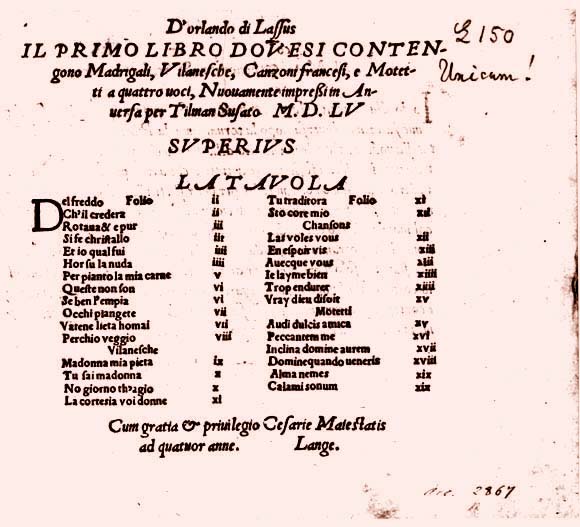 D'orlando di Lassus
IL PRIMO LIBRO DOVESI CONTEN-
gono Madrigali, Vilanesche, Canzoni francesi, e Motet-
ti a quattro uoci, Nuouamente impreßi in An-
uersa per Tilman Susato M. D. LV
SVPERIVS
LA TAVOLA
Del freddo Folio ii
Ch'il credera ii
Rotaua & e pur iii
Si fe christallo iii
Et io qual fui iiii
Hor su la nuda iiii
Per pianto la mia carne v
Queste non son vi
Se ben l'empia vi
Occhi piangete vii
Vatene lieta homai vii
Perchio veggio viii
Vilanesche
Madonna mia pieta ix
Tu sai madonna x
No giorno x
La cortesia voi donne xi
Tu traditora Folio xi
Sto core mio xii
Chansons
Las voles vous xii
En espoir vis xiii
Auecque vous xiii
Ie layme bien xiiii
Trop endurer xiiii
Vray dieu disoit xv
Motetti
Audi dulcis amica xv
Peccantem me xvi
Inclina domine aurem xvii
Domine quando ueneris xviii
Alma nemes xix
Calami sonum xix
Cum gratia & priuilegio Cesarie Maiestatis
ad quatuor anne. Lange.
£150
Unicum!
2867